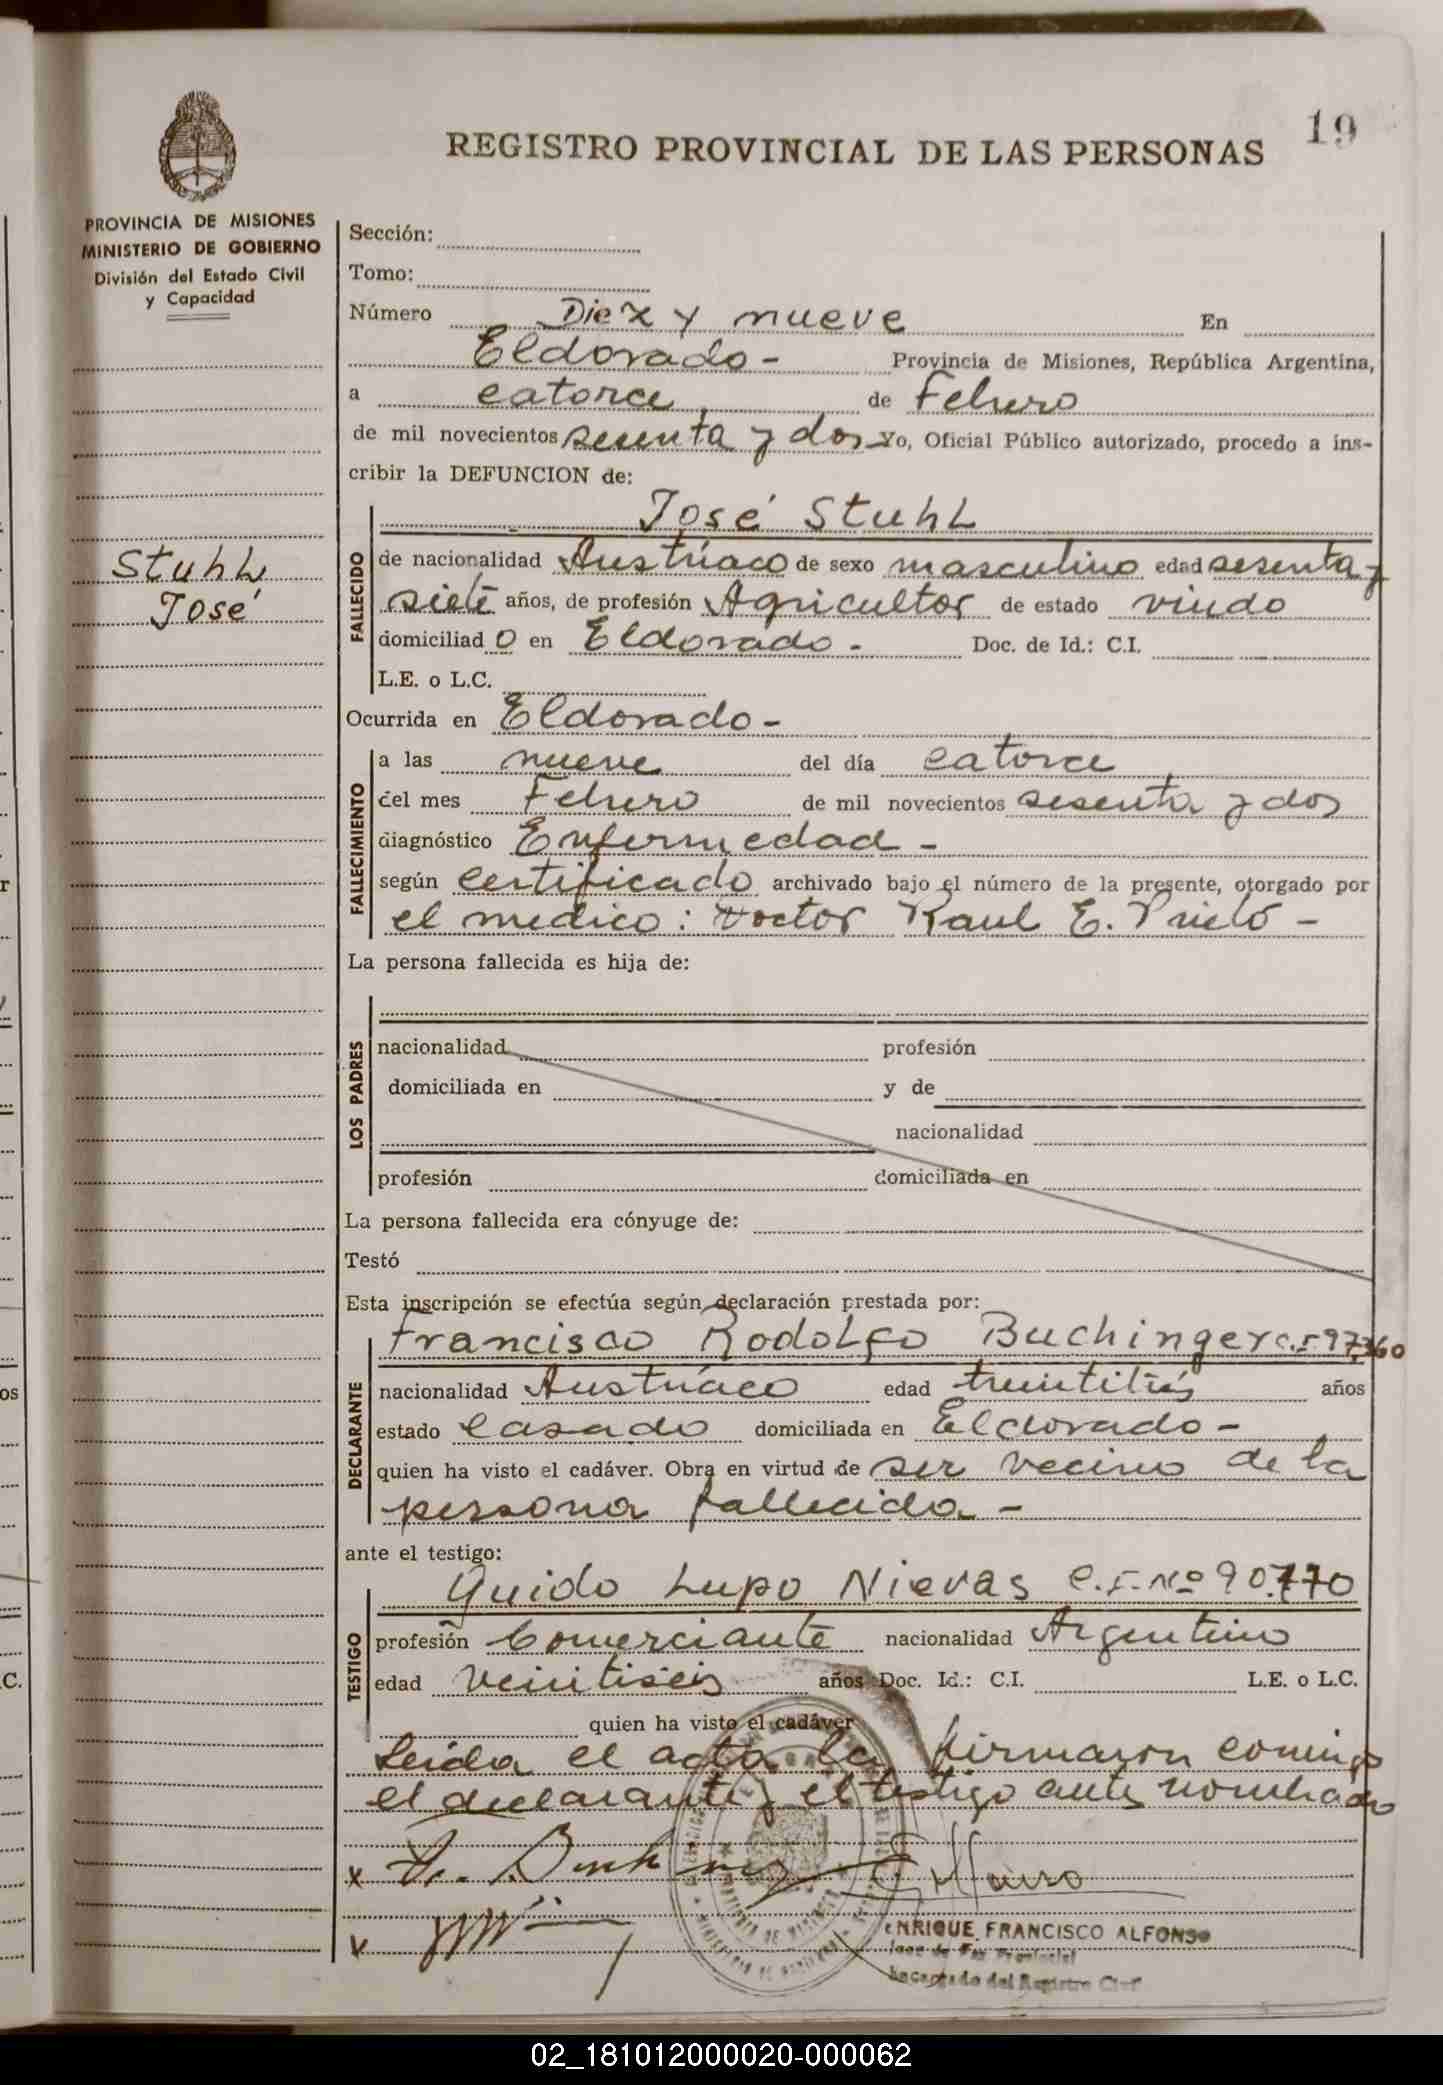 19
REGISTRO PROVINCIAL DE LAS PERSONAS
PROVINCIA DE MISIONES
MINISTERIO DE GOBIERNO
División del Estado Civil
y Capacidad
Stuhl
José
Sección:
Tomo:
Número Diez y nueve En
Eldorado - Provincia de Misiones, República Argentina,
a catorce de Febrero
de mil novecientos sesenta y dos Yo, Oficial Público autorizado, procedo a ins-
cribir la DEFUNCION de:
José Stuhl
FALLECIDO
de nacionalidad Austríaco de sexo masculino edad sesenta y
siete años, de profesión Agricultor de estado viudo
domiciliad o en Eldorado - Doc. de Id.: C.I.
L.E. o L.C.
Ocurrida en Eldorado -
FALLECIMIENTO
a las nueve del día catorce
del mes Febrero de mil novecientos sesenta y dos
diagnóstico Enfermedad -
según certificado archivado bajo el número de la presente, otorgado por
el medico: Doctor Raul E. Prieto -
La persona fallecida es hija de:
LOS PADRES
nacionalidad profesión
domiciliada en y de
nacionalidad
profesión domiciliada en
La persona fallecida era cónyuge de:
Testó
Esta inscripción se efectúa según declaración prestada por:
Francisco Rodolfo Buchinger c.I. 97.360
DECLARANTE
nacionalidad Austríaco edad treintitrés años
estado casado domiciliada en Eldorado -
quien ha visto el cadáver. Obra en virtud de ser vecino de la
persona fallecida -
ante el testigo:
Guido Lupo Nievas C.I. Nº 90.770
TESTIGO
profesión Comerciante nacionalidad Argentino
edad veintiseis años Doc. Id.: C.I. L.E. o L.C.
quien ha visto el cadáver
Leida el acta la firmaron comigo
el declarante y el testigo antes nombrado
x
ENRIQUE FRANCISCO ALFONSO
Juez de Paz Provincial
Encargado del Registro Civil
02_181012000020-000062